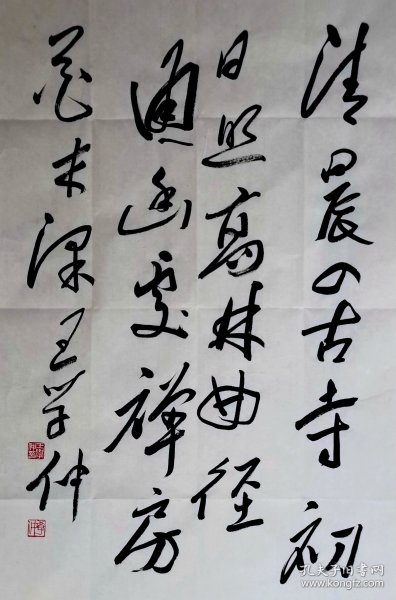 清晨入古寺初
日照高林曲径
通幽处禅房
花木深王学仲
孔夫子旧书网
www.kongfz.com